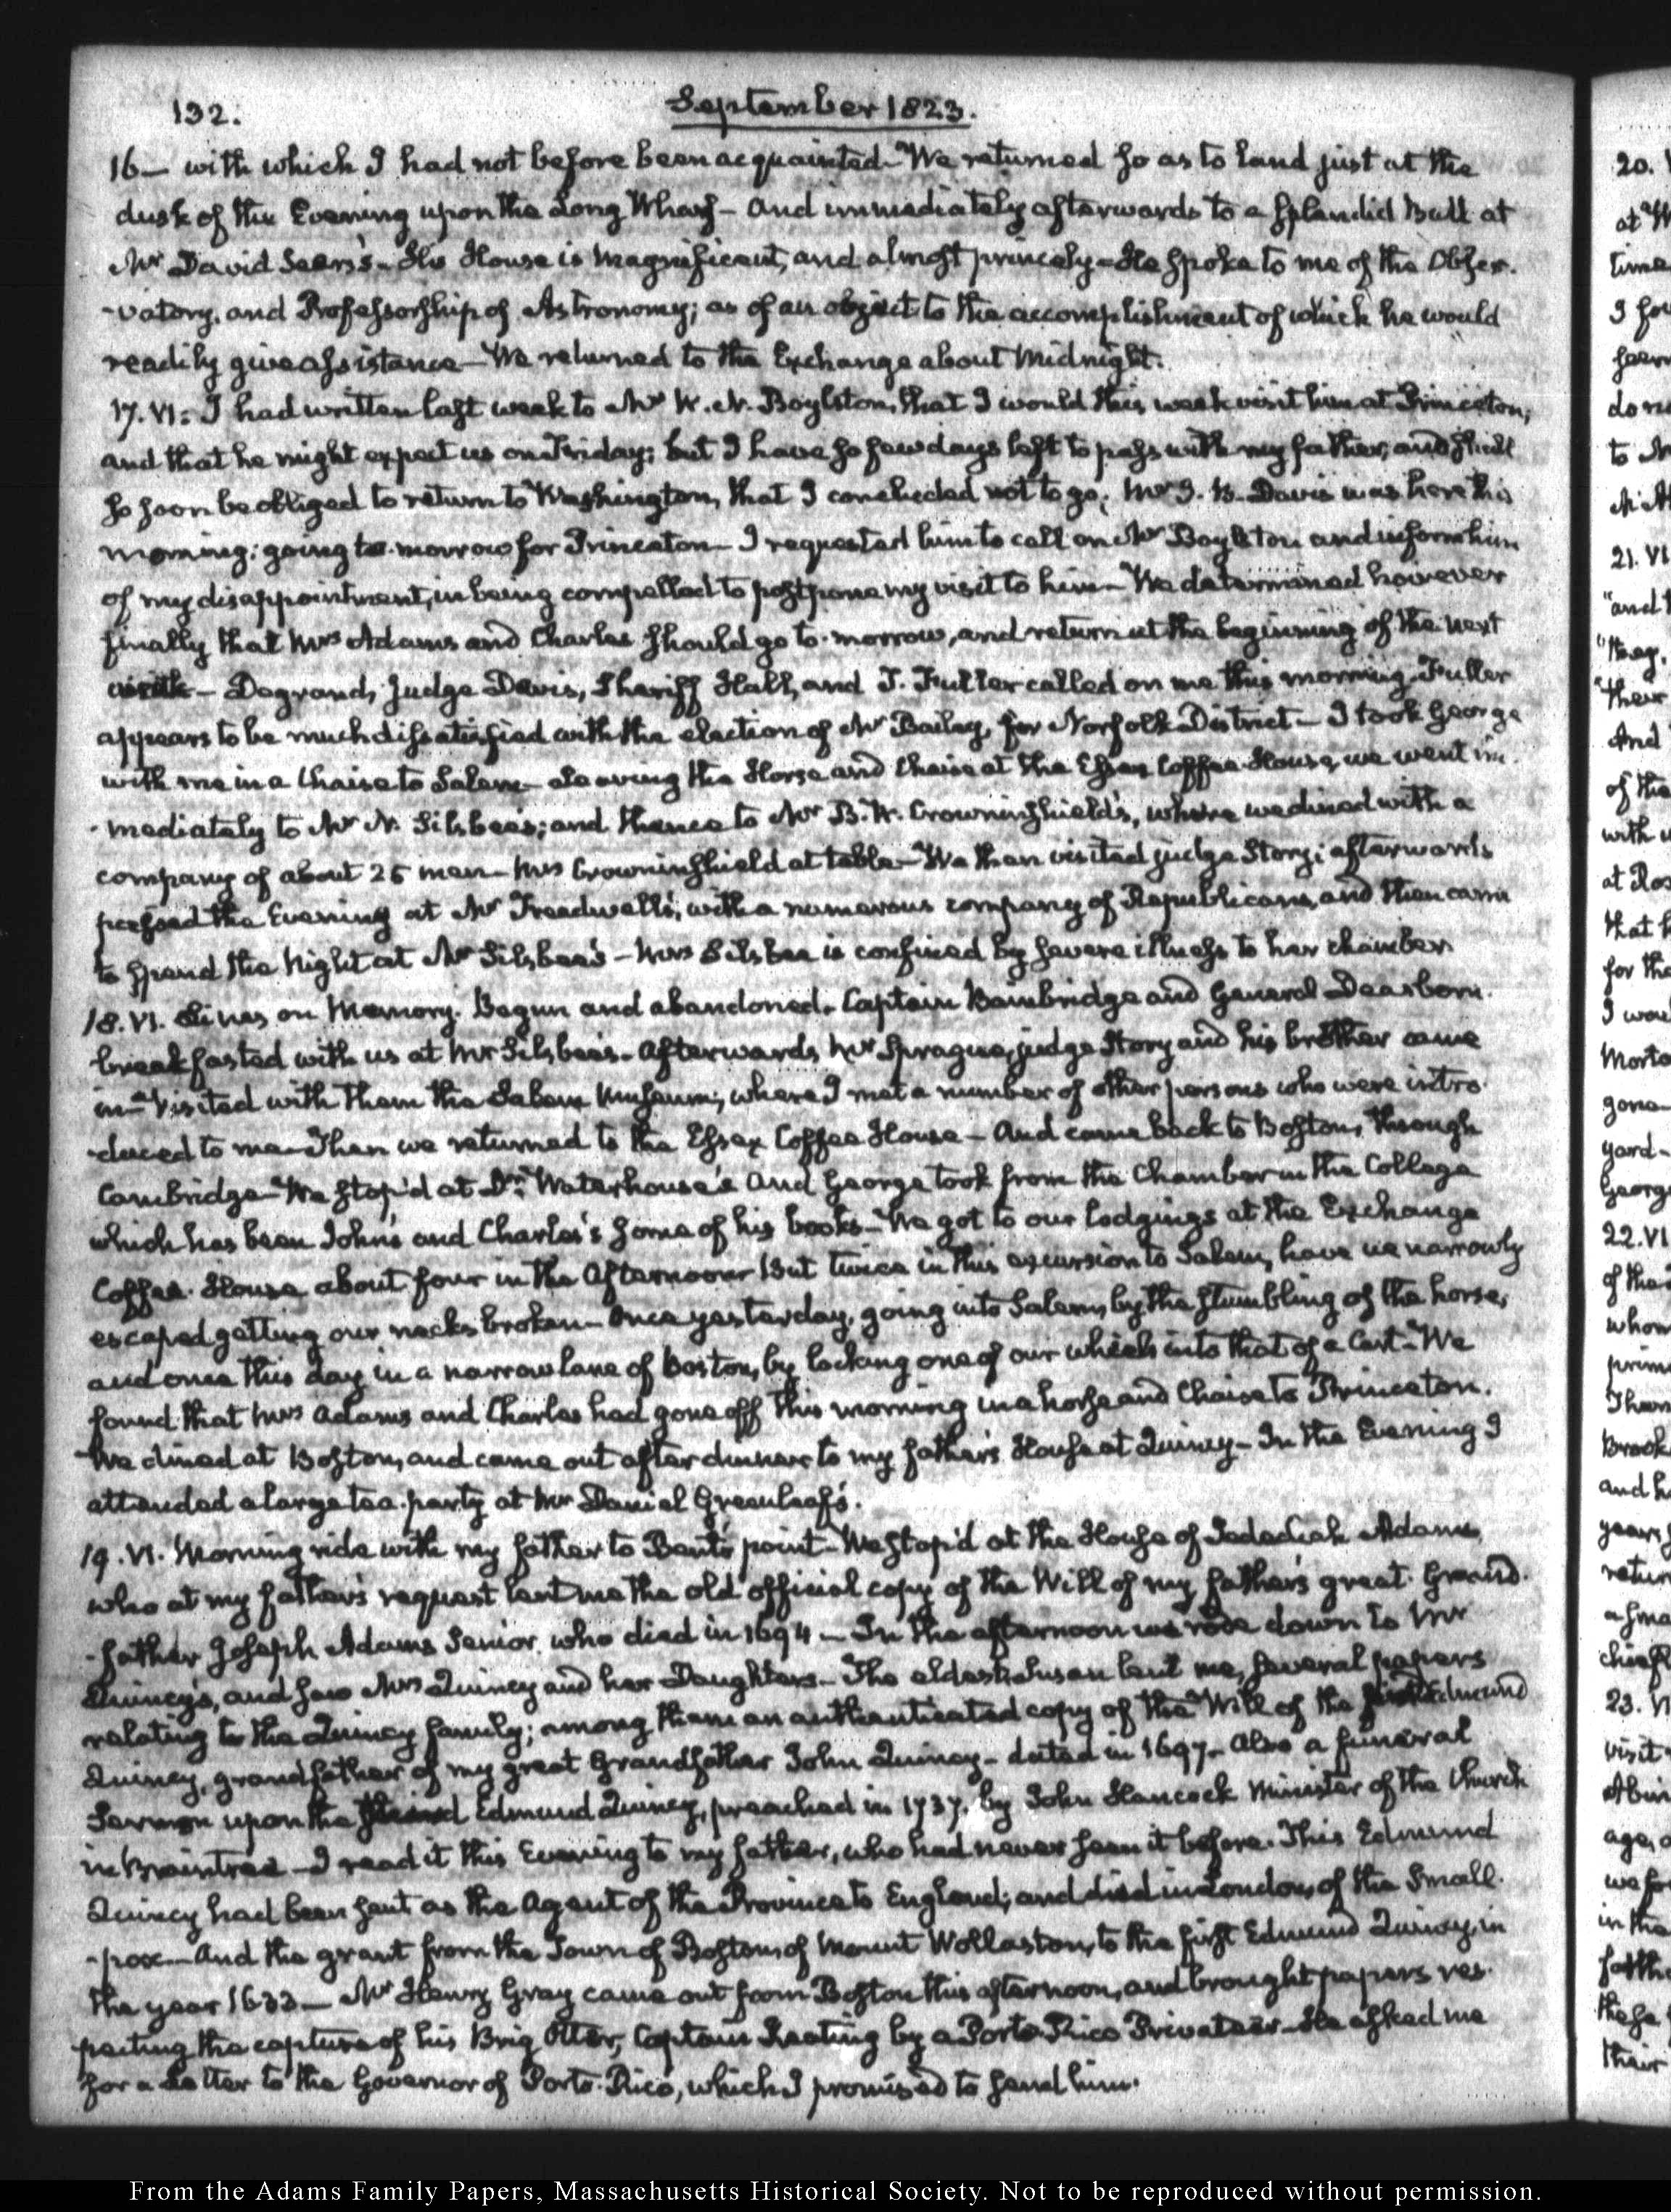 132.
September 1823.
16— with which I had not before been acquainted— We returned so as to land just at the
dusk of the Evening upon the Long Wharf— And immediately afterwards to a splendid Ball at
Mr David Sears's— His House is magnificent, and almost princely— He spoke to me of the Obser-
-vatory, and Professorship of Astronomy; as of an object to the accomplishment of which he would
readily give assistance— We returned to the Exchange about Midnight.
17. VI: I had written last week to Mr W. N. Boylston, that I would this week visit him at Princeton,
and that he might expect us on Friday; but I have so few days left to pass with my father, and shall
so soon be obliged to return to Washington, that I concluded not to go. Mr I. P. Davis was here this
morning: going to-morrow for Princeton— I requested him to call on Mr Boylston and inform him
of my disappointment, in being compelled to postpone my visit to him— We determined however
finally that Mrs Adams and Charles should go to-morrow, and return at the beginning of the next
week— Degrand, Judge Davis, Sheriff Hall, and T. Fuller called on me this morning. Fuller
appears to be much dissatisfied with the election of Mr Bailey, for Norfolk District— I took George
with me in a Chaise to Salem— Leaving the Horse and Chaise at the Essex Coffee-House, we went im-
-mediately to Mr N. Silsbee's; and thence to Mr B. W. Crowninshield's, where we dined with a
company of about 25 men— Mrs Crowninshield at table— We then visited judge Story; afterwards
passed the Evening at Mr Treadwell's, with a numerous company of Republicans, and then came
to spend the Night at Mr Silsbee's— Mrs Silsbee is confined by severe illness to her chamber.
18. VI. Lines on Memory. Begun and abandoned. Captain Bainbridge and General Dearborn
breakfasted with us at Mr Silsbee's— Afterwards Mr Sprague, judge Story and his brother came
in— Visited with them the Salem Museum; where I met a number of other persons who were intro-
-duced to me— Then we returned to the Essex Coffee House— And came back to Boston, through
Cambridge— We stop'd at Dr. Waterhouse's And George took from the Chamber in the College
which has been John's and Charles's some of his books— We got to our lodgings at the Exchange
Coffee-House about four in the Afternoon— But twice in this excursion to Salem, have we narrowly
escaped getting our necks broken— Once yesterday, going into Salem, by the stumbling of the horse,
and once this day in a narrow lane of Boston, by locking one of our wheels into that of a Cart— We
found that Mrs Adams and Charles had gone off this morning in a horse and Chaise to Princeton.
We dined at Boston, and came out after dinner to my father's House at Quincy— In the Evening I
attended a large tea-party at Mr Daniel Greenleaf's.
19. VI. Morning ride with my father to Bent's point— We stop'd at the House of Jedediah Adams,
who at my father's request lent me the old official copy of the Will of my father's great-Grand-
-father Joseph Adams Senior who died in 1694— In the afternoon we rode down to Mr
Quincy's, and saw Mrs Quincy and her Daughters— The eldest Susan lent me, several papers
relating to the Quincy family; among them an authenticated copy of the Will of the Edmund
Quincy, grandfather of my great Grandfather John Quincy— dated in 1697— Also a funeral
Sermon upon the Edmund Quincy, preached in 1737. by John Hancock Minister of the Church
in Braintree— I read it this Evening to my father, who had never seen it before. This Edmund
Quincy had been sent as the Agent of the Province to England; and died in London, of the Small-
-pox— And the grant from the Town of Boston, of Mount Wollaston, to the first Edmund Quincy, in
the year 1633— Mr Henry Gray came out from Boston this afternoon, and brought papers res-
pecting the capture of his Brig Otter, Captain Keating by a Porto-Rico Privateer— He asked me
for a Letter to the Governor of Porto-Rico, which I promised to send him.
From the Adams Family Papers, Massachusetts Historical Society. Not to be reproduced without permission.